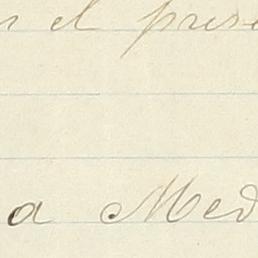 el prese
a Med